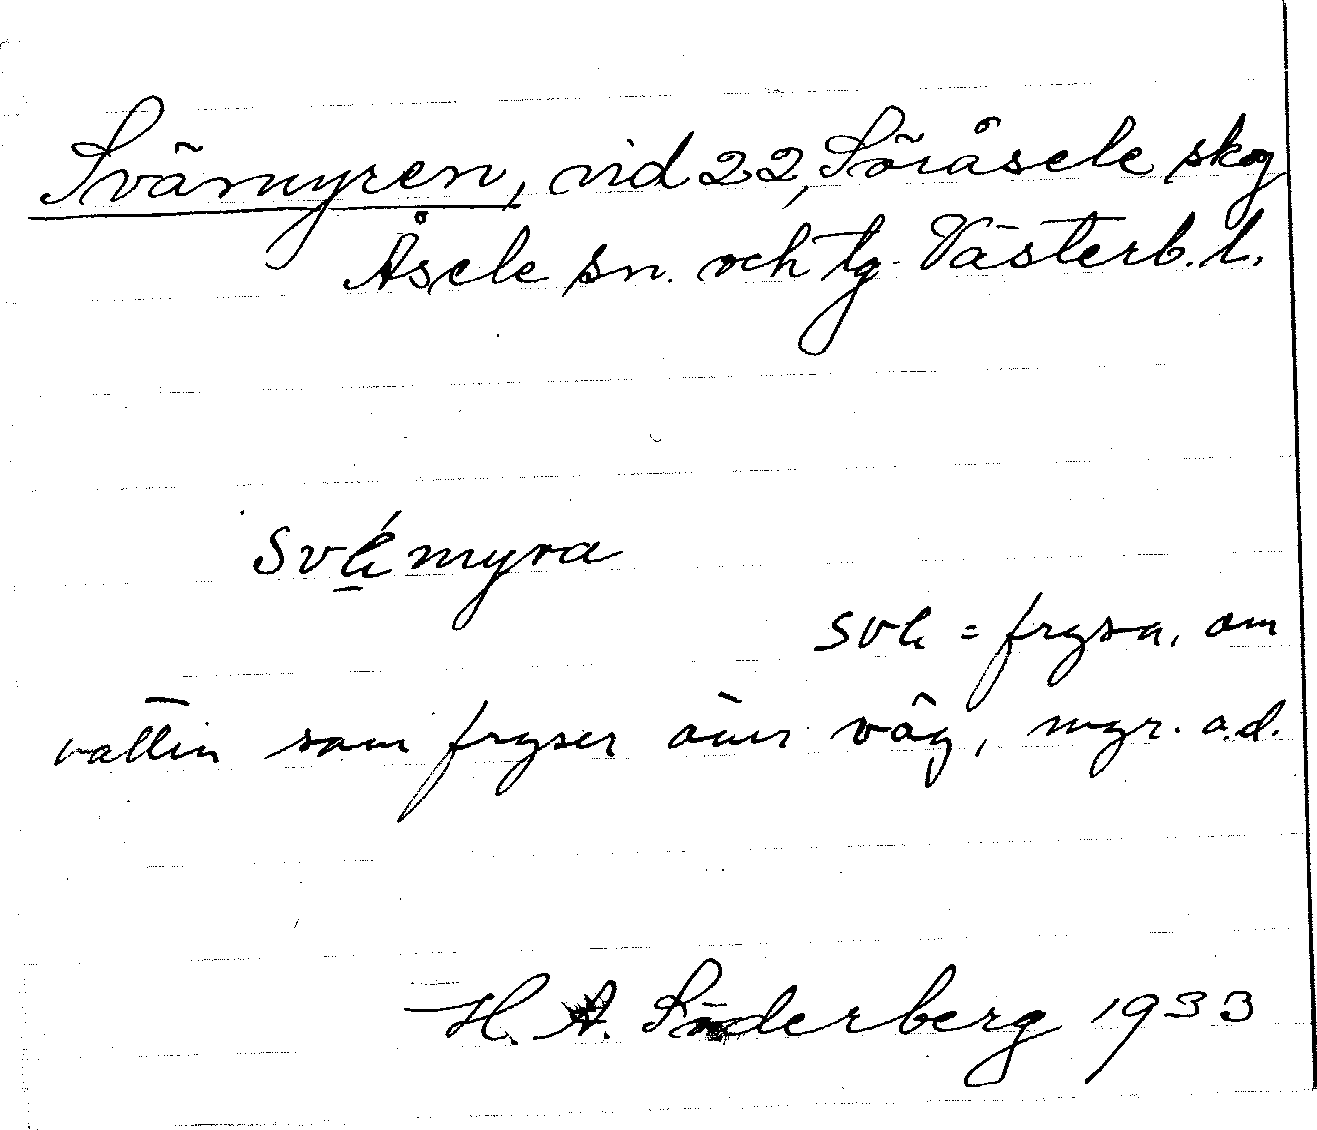 Svämyren, vid 22, Söråsele skog
Åsele sn. och tg. Västerb. l.
myra
= frysa, om
vatten som fryser över väg, myr. a.d.
H. A. Söderberg 1933